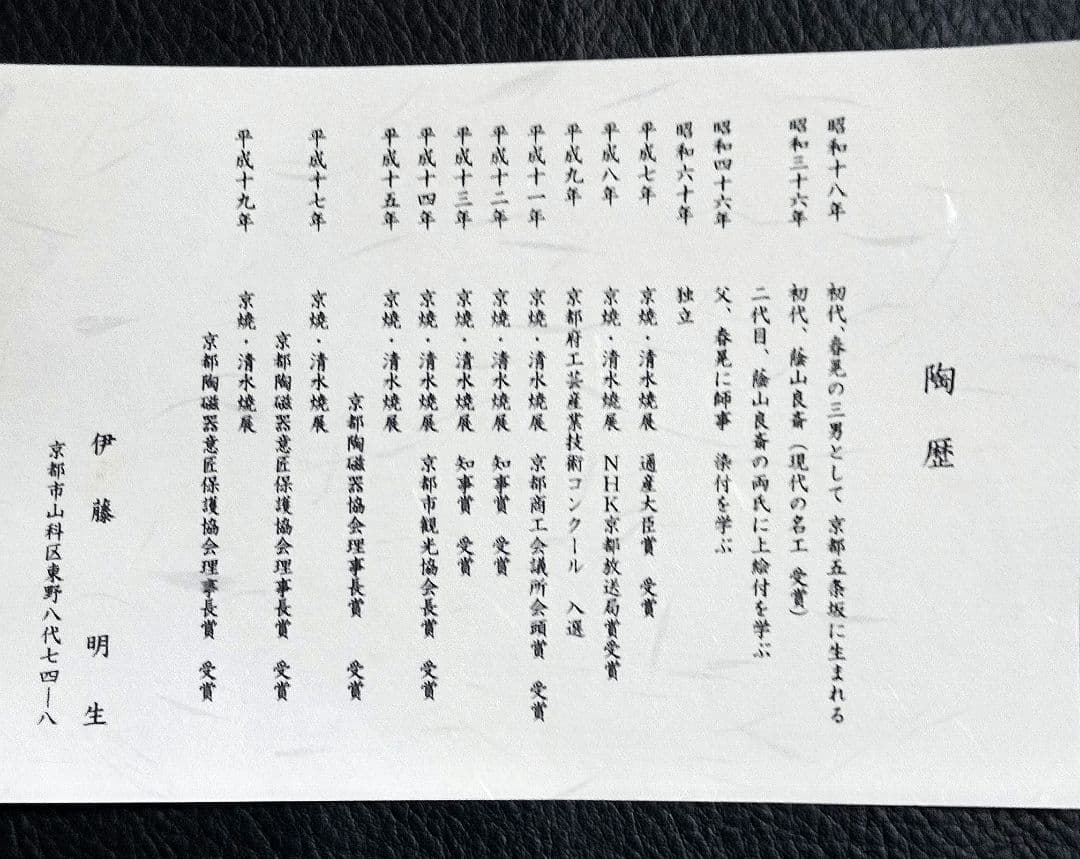 陶歴
昭和十八年 初代、春晃の三男として 京都五条坂に生まれる
昭和三十六年 初代、蔭山良斎（現代の名工 受賞）
二代目、蔭山良斎の両氏に上絵付を学ぶ
昭和四十六年 父、春晃に師事 染付を学ぶ
昭和六十年 独立
平成七年 京焼・清水焼展 通産大臣賞 受賞
平成八年 京焼・清水焼展 NHK京都放送局賞受賞
平成九年 京都府工芸産業技術コンクール 入選
平成十一年 京焼・清水焼展 京都商工会議所会頭賞 受賞
平成十二年 京焼・清水焼展 知事賞 受賞
平成十三年 京焼・清水焼展 知事賞 受賞
平成十四年 京焼・清水焼展 京都市観光協会長賞 受賞
平成十五年 京焼・清水焼展
京都陶磁器協会理事長賞 受賞
平成十七年 京焼・清水焼展
京都陶磁器意匠保護協会理事長賞 受賞
平成十九年 京焼・清水焼展
京都陶磁器意匠保護協会理事長賞 受賞
伊藤 明生
京都市山科区東野八代七四ー八